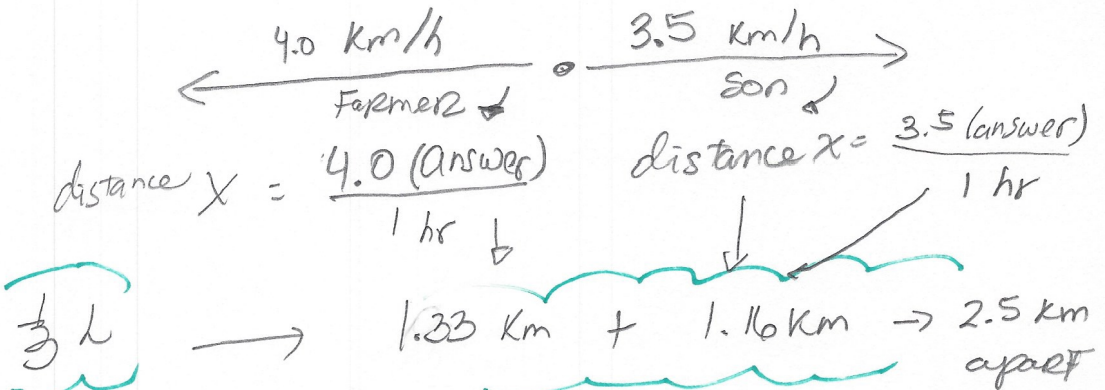 4.0 km/h 3.5 km/h
Farmer Son
distance X = 4.0 (answer) / 1 hr distance X = 3.5 (answer) / 1 hr
1/3 h → 1.33 Km + 1.16 Km → 2.5 km
apart